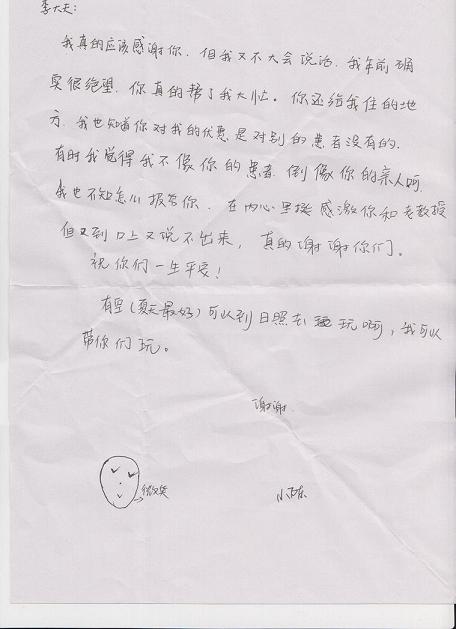 李大夫:
我真的应该感谢你. 但我又不大会说话. 我年前确
实很绝望. 你真的帮了我大忙。你还给我住的地
方. 我也知道你对我的优惠是对别的患者没有的.
有时我觉得我不像你的患者. 倒像你的亲人啊.
我也不知怎么报答你. 在内心里挺感激你和老教授
但又到口上又说不出来, 真的谢谢你们。
祝你们一生平安!
有空(夏天最好)可以到日照去玩啊, 我可以
带你们玩。
谢谢.
→微笑
小陈